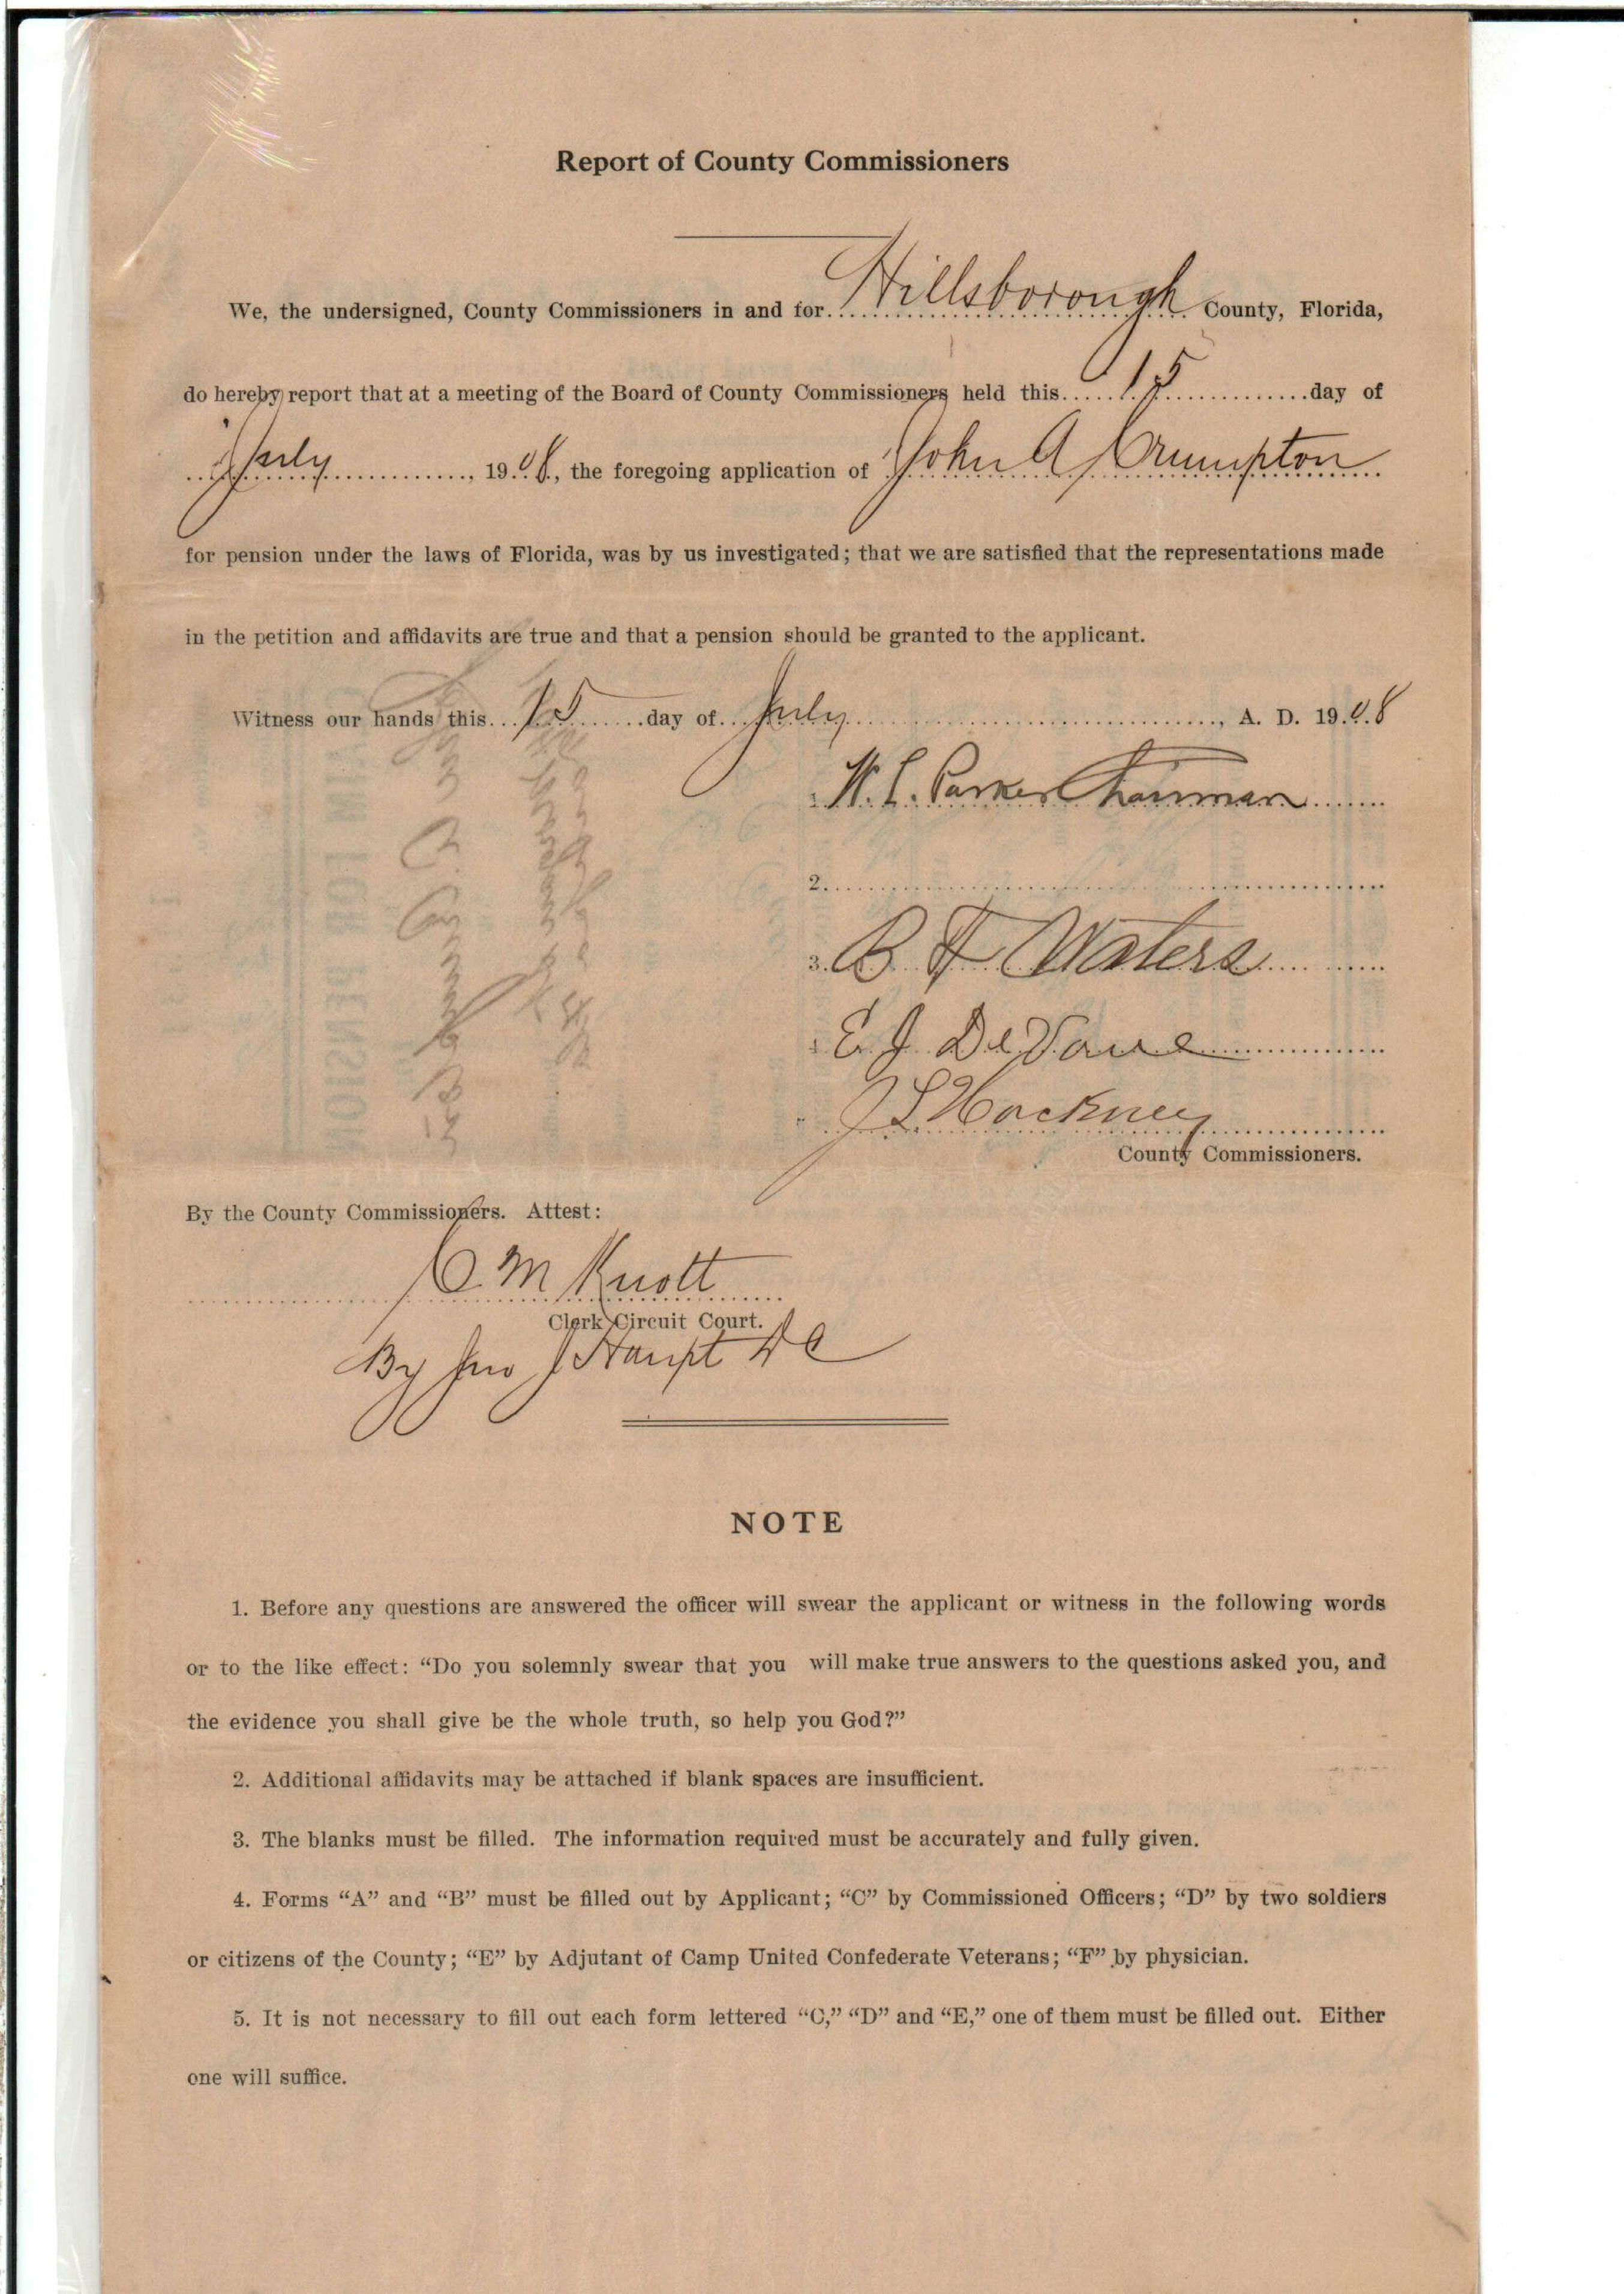 Report of County Commissioners
We, the undersigned, County Commissioners in and for Hillsborough County, Florida,
do hereby report that at a meeting of the Board of County Commissioners held this 15 day of
July, 1908, the foregoing application of John A Crumpton
for pension under the laws of Florida, was by us investigated; that we are satisfied that the representations made
in the petition and affidavits are true and that a pension should be granted to the applicant.
Witness our hands this 15 day of July, A. D. 1908
W. L. Parker Chairman
2.
3. B F Waters
E. J. DeVane
J L Hackney
County Commissioners.
By the County Commissioners. Attest:
C. M Knott
Clerk Circuit Court.
By Jno J Haupt DC
NOTE
1. Before any questions are answered the officer will swear the applicant or witness in the following words
or to the like effect: “Do you solemnly swear that you will make true answers to the questions asked you, and
the evidence you shall give be the whole truth, so help you God?”
2. Additional affidavits may be attached if blank spaces are insufficient.
3. The blanks must be filled. The information required must be accurately and fully given.
4. Forms “A” and “B” must be filled out by Applicant; “C” by Commissioned Officers; “D” by two soldiers
or citizens of the County; “E” by Adjutant of Camp United Confederate Veterans; “F” by physician.
5. It is not necessary to fill out each form lettered “C,” “D” and “E,” one of them must be filled out. Either
one will suffice.